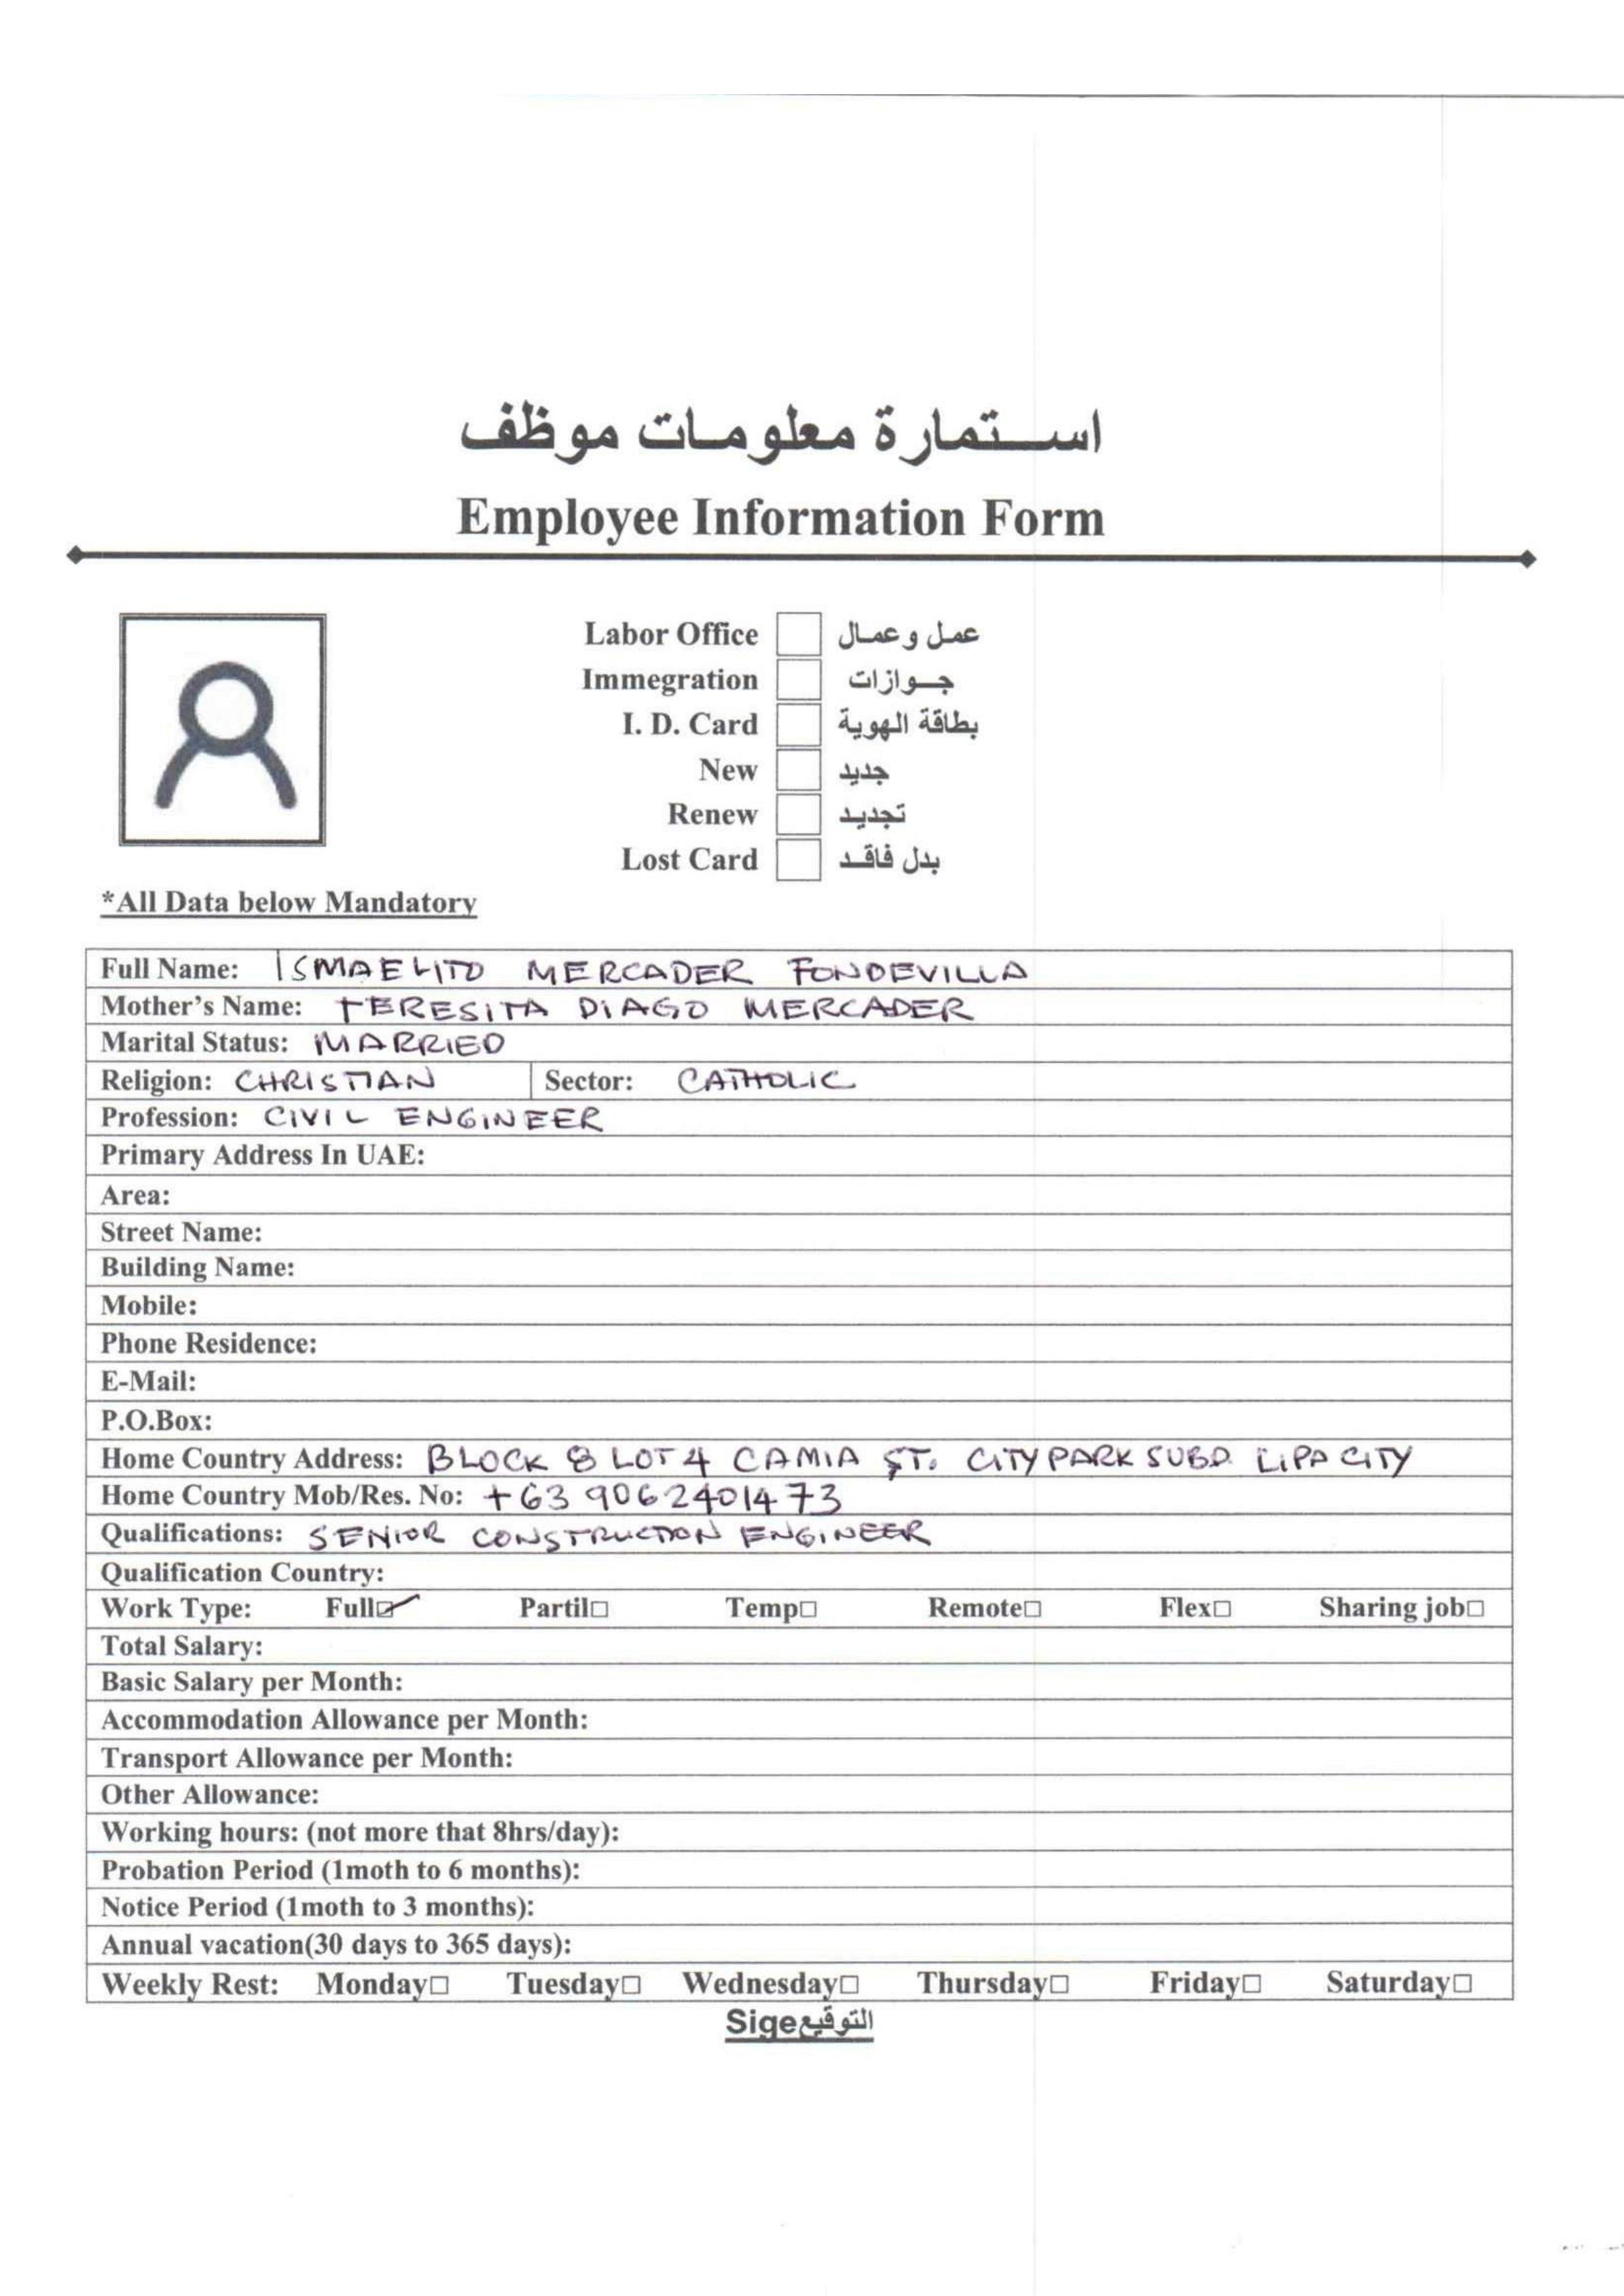 استمارة معلومات موظف
Employee Information Form
Labor Office عمل وعمال
Immegration جوازات
I. D. Card بطاقة الهوية
New جديد
Renew تجديد
Lost Card بدل فاقد
*All Data below Mandatory
Full Name: ISMAELITO MERCADER FONDEVILLA
Mother's Name: TERESITA DIAGO MERCADER
Marital Status: MARRIED
Religion: CHRISTIAN Sector: CATHOLIC
Profession: CIVIL ENGINEER
Primary Address In UAE:
Area:
Street Name:
Building Name:
Mobile:
Phone Residence:
E-Mail:
P.O.Box:
Home Country Address: BLOCK 8 LOT 4 CAMIA ST. CITY PARK SUBD. LIPA CITY
Home Country Mob/Res. No: +63 9062401473
Qualifications: SENIOR CONSTRUCTION ENGINEER
Qualification Country:
Work Type: Full☑ Partil□ Temp□ Remote□ Flex□ Sharing job□
Total Salary:
Basic Salary per Month:
Accommodation Allowance per Month:
Transport Allowance per Month:
Other Allowance:
Working hours: (not more that 8hrs/day):
Probation Period (1moth to 6 months):
Notice Period (1moth to 3 months):
Annual vacation(30 days to 365 days):
Weekly Rest: Monday□ Tuesday□ Wednesday□ Thursday□ Friday□ Saturday□
Sigeالتوقيع